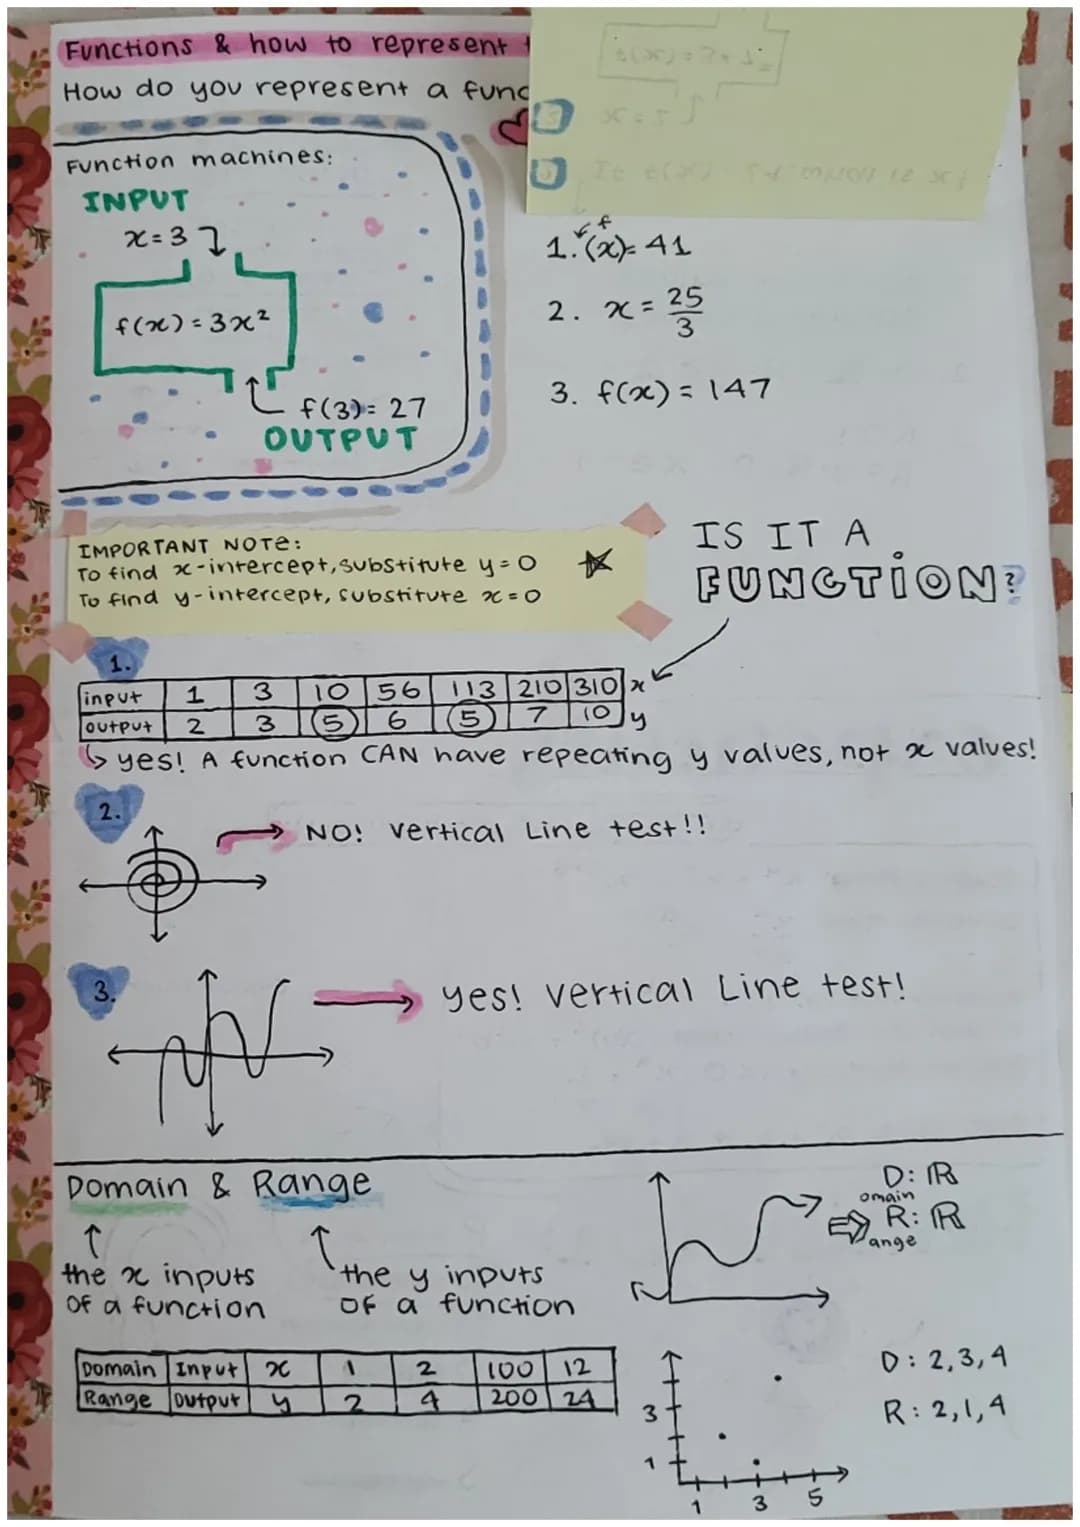 Functions & how to represent
How do you represent a func
Function machines:
INPUT
x=3
f(x)=3x²
f(3)=27
OUTPUT
f
1. (x)=41
2. x = 25/3
3. f(x) = 147
IMPORTANT NOTE:
To find x-intercept, substitute y=0
To find y-intercept, substitute x=0
IS IT A
FUNCTION?
1.
input 1 3 10 56 113 210 310 x
output 2 3 5 6 5 7 10 y
yes! A function CAN have repeating y values, not x values!
2.
NO! Vertical Line test!!
3.
yes! Vertical Line test!
Domain & Range
the x inputs
of a function
the y inputs
of a function
D: ℝ
omain
R: ℝ
ange
Domain Input x 1 2 100 12
Range Output y 2 4 200 24
D: 2,3,4
R: 2,1,4
3
1
1 3 5